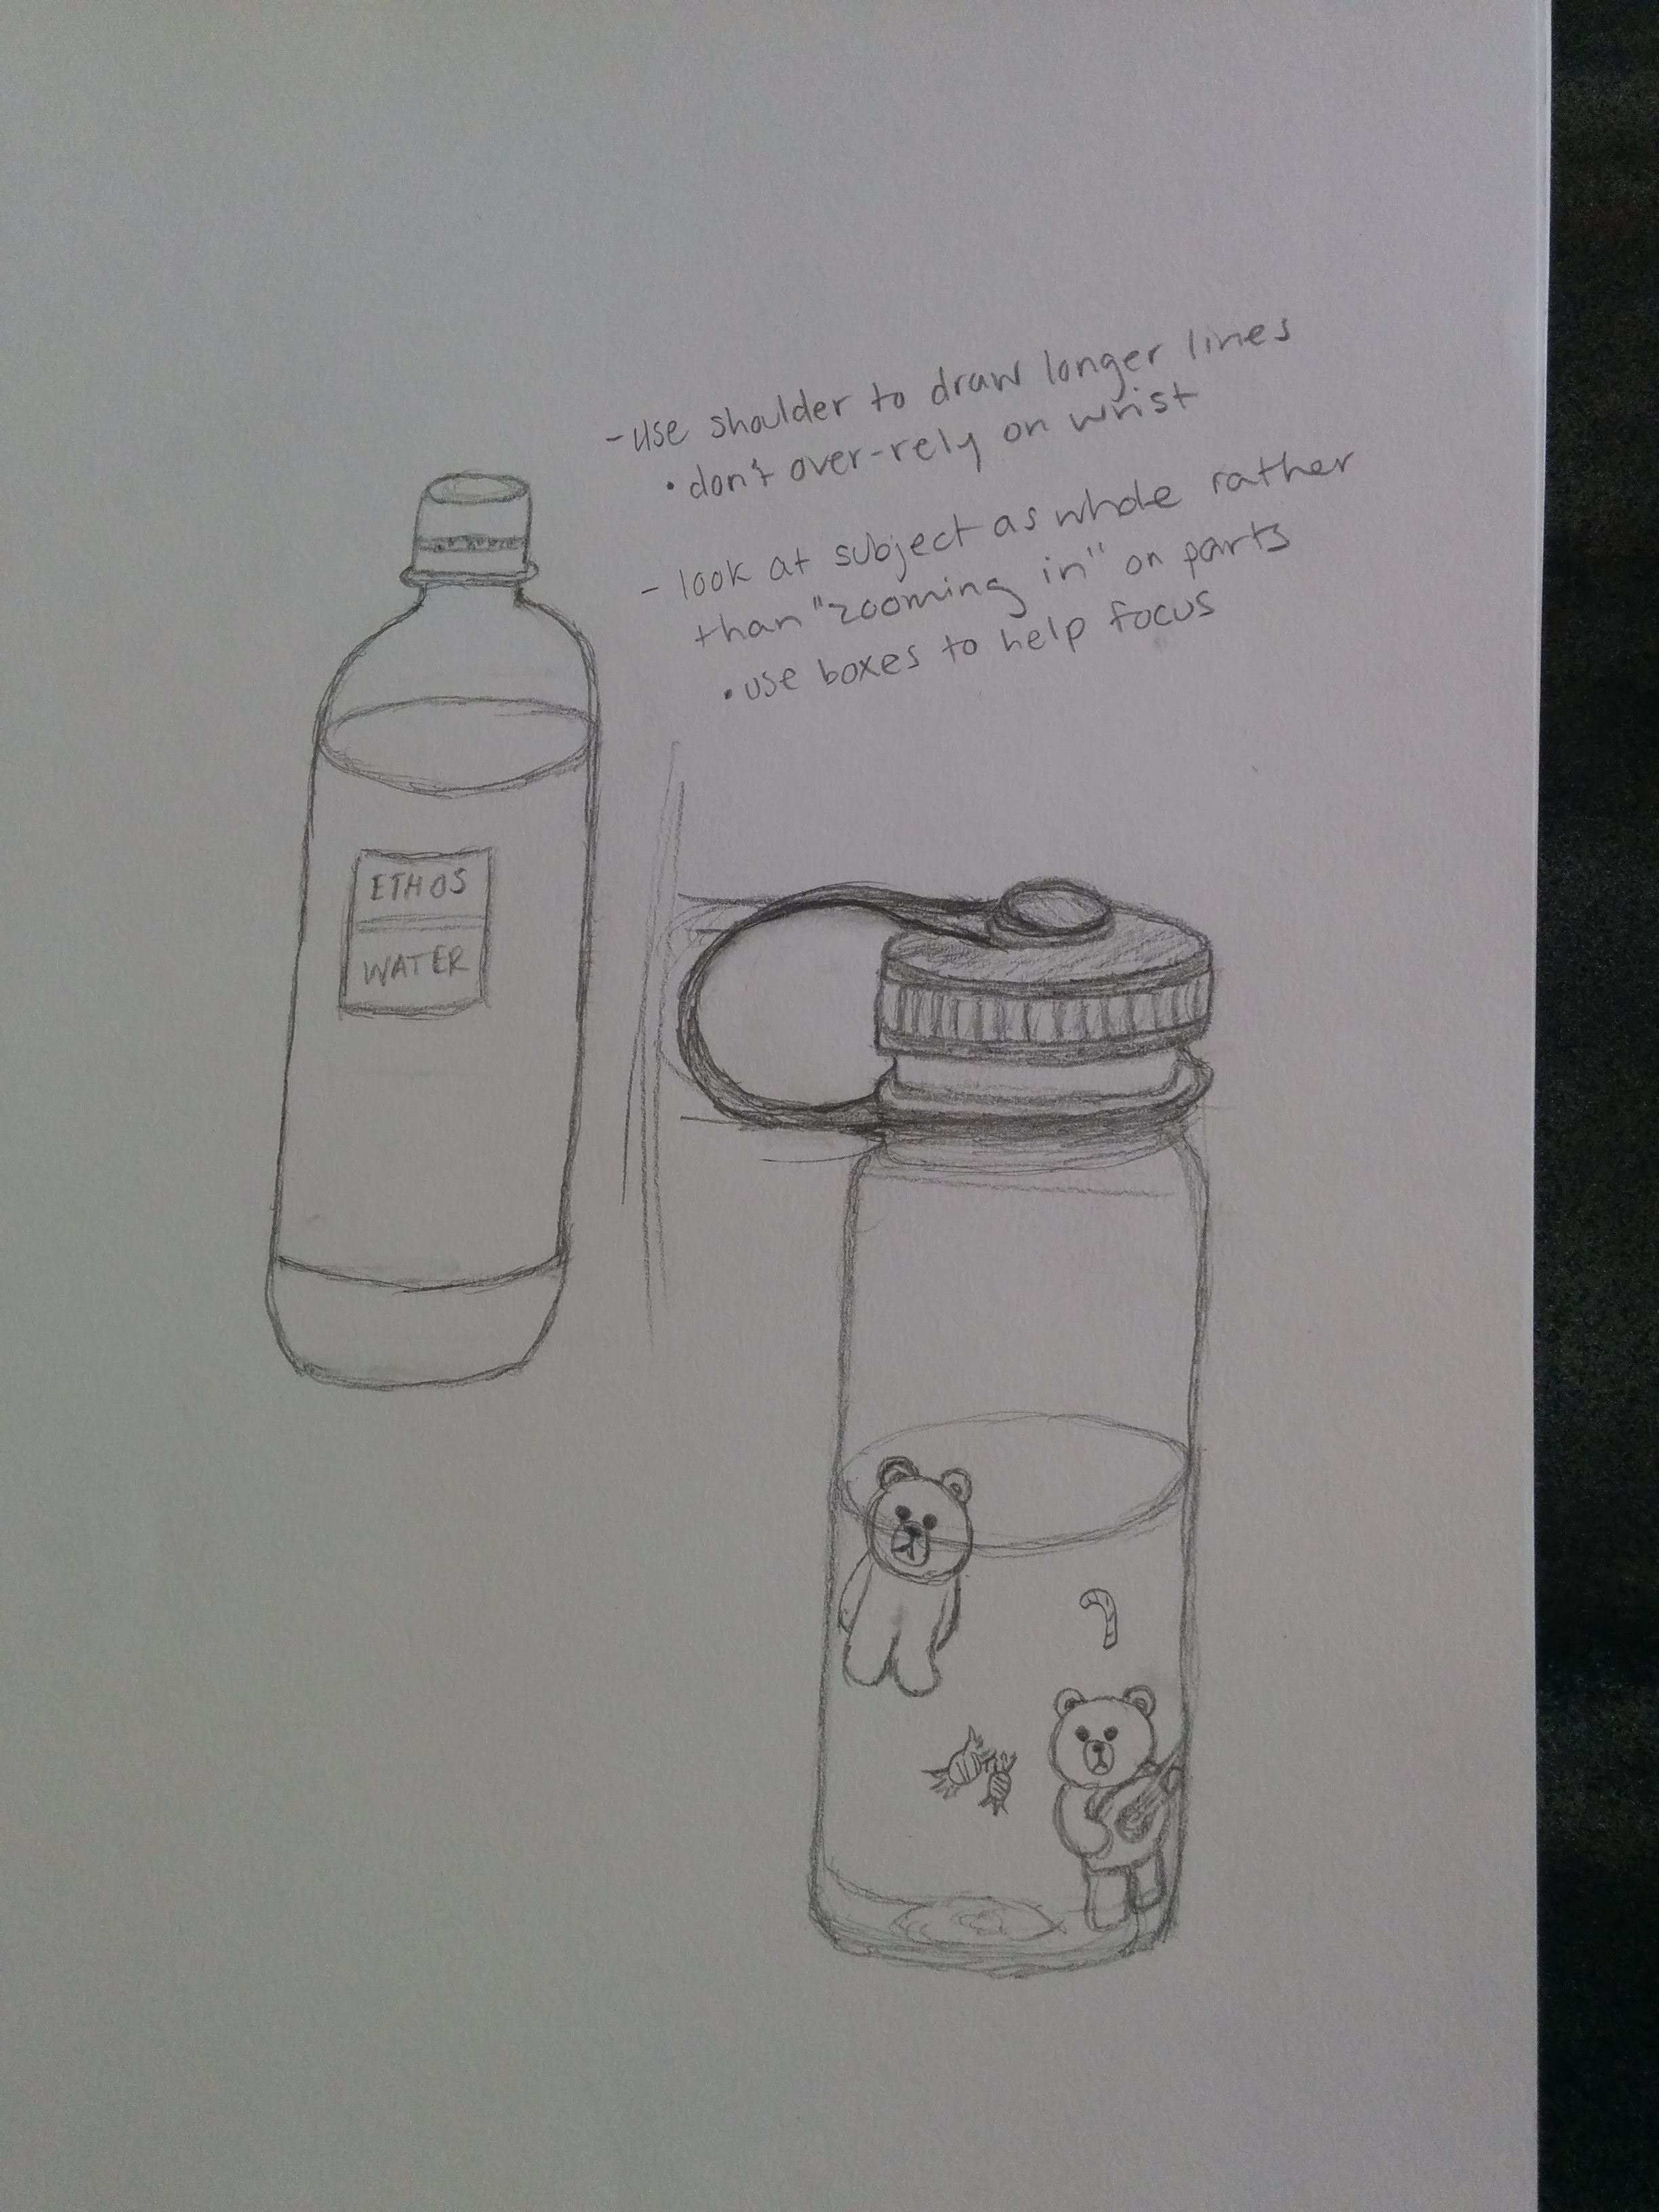 -use shoulder to draw longer lines
• don't over-rely on wrist
- look at subject as whole rather
than "zooming in" on parts
• use boxes to help focus
ETHOS
WATER